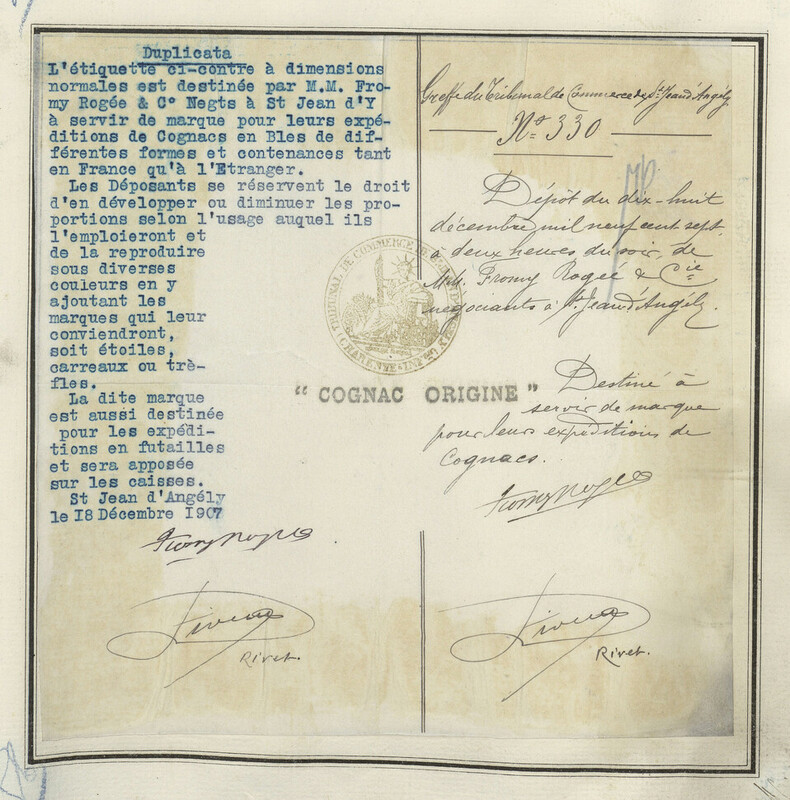 Duplicata
L'étiquette ci-contre à dimensions
normales est destinée par M.M. Fro-
my Rogée & C° Negts à St Jean d'Y
à servir de marque pour leurs expé-
ditions de Cognacs en Bles de dif-
férentes formes et contenances tant
en France qu'à l'Etranger.
Les Déposants se réservent le droit
d'en développer ou diminuer les pro-
portions selon l'usage auquel ils
l'emploieront et
de la reproduire
sous diverses
couleurs en y
ajoutant les
marques qui leur
conviendront,
soit étoiles,
carreaux ou trè-
fles.
La dite marque
est aussi destinée
pour les expédi-
tions en futailles
et sera apposée
sur les caisses.
St Jean d'Angély
le 18 Décembre 1907
Fromy Rogée
Rivet.
TRIBUNAL DE COMMERCE DE
" COGNAC ORIGINE "
Greffe du Tribunal de Commerce de St Jean d'Angély
N° 330
Dépôt du dix-huit
décembre mil neuf cent sept,
à deux heures du soir, de
M.M. Fromy Rogée & Cie
négociants à St Jean d'Angély.
Destiné à
servir de marque
pour leurs expéditions de
Cognacs.
Fromy Rogée
Rivet.